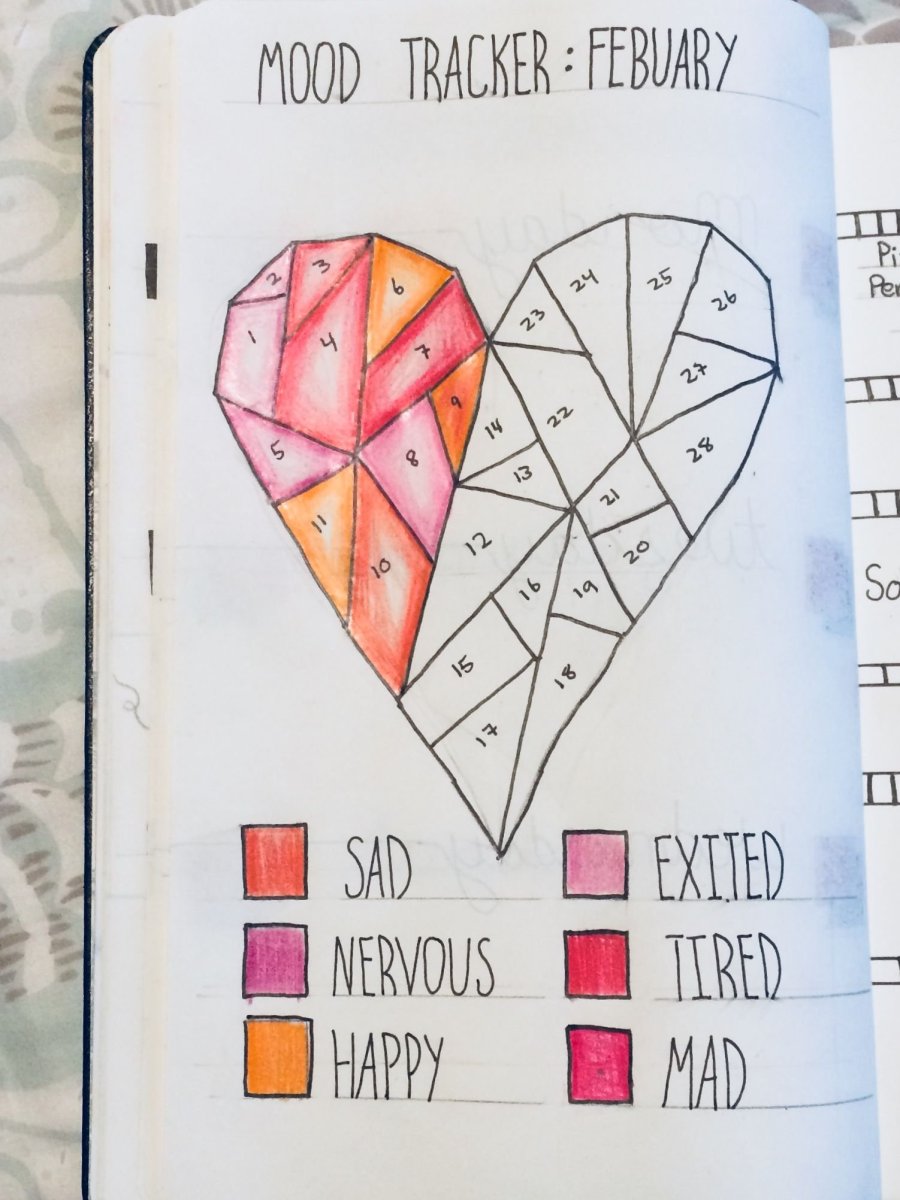 MOOD TRACKER: FEBUARY
2 3 6
1 4 7
5 8 9
11 10
23 24 25 26
14 22 27
13 28
12 21
16 19 20
15 18
17
SAD EXITED
NERVOUS TIRED
HAPPY MAD